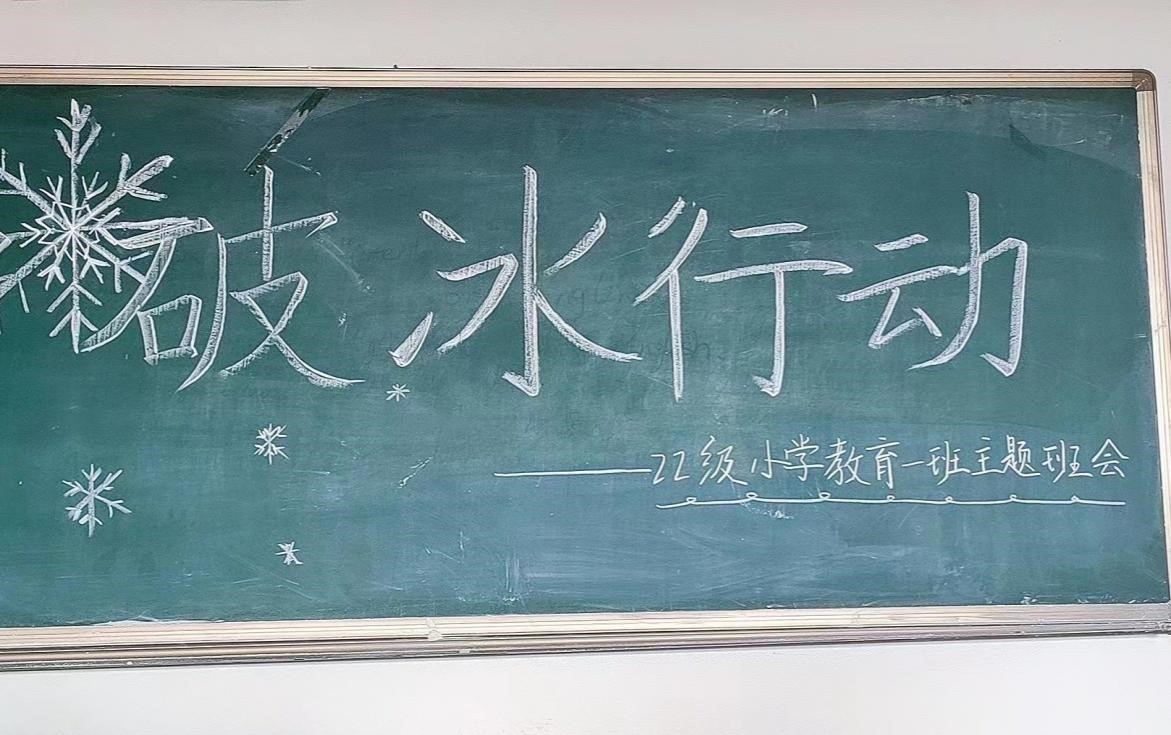 破冰行动
——22级小学教育一班主题班会